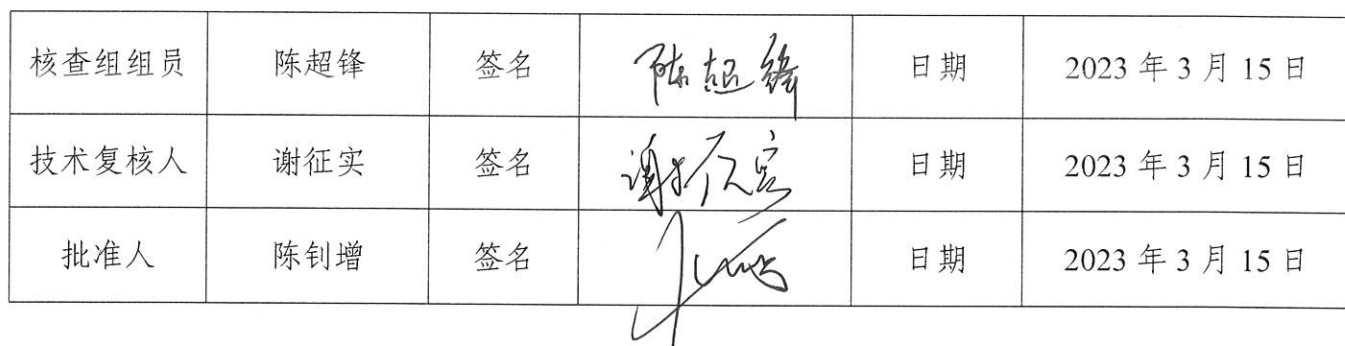 核查组组员 陈超锋 签名 陈超锋 日期 2023 年 3 月 15 日
技术复核人 谢征实 签名 日期 2023 年 3 月 15 日
批准人 陈钊增 签名 日期 2023 年 3 月 15 日